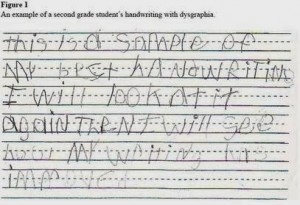 Figure 1
An example of a second grade student's handwriting with dysgraphia.
this is a SaMPle oF
My best HANdwRitiNg
I will look At it
AgAiN THeN I will See
how My wRitiNg HAS
iMProved